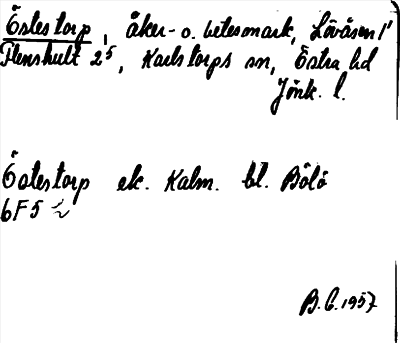 Östestorp, åker- o. betesmark, Lövåsen 1'
Flenshult 2⁵, Karlstorps sn, Östra hd
Jönk. l.
Östestorp ek. Kalm. bl. Bölö
6F5
B.C. 1957